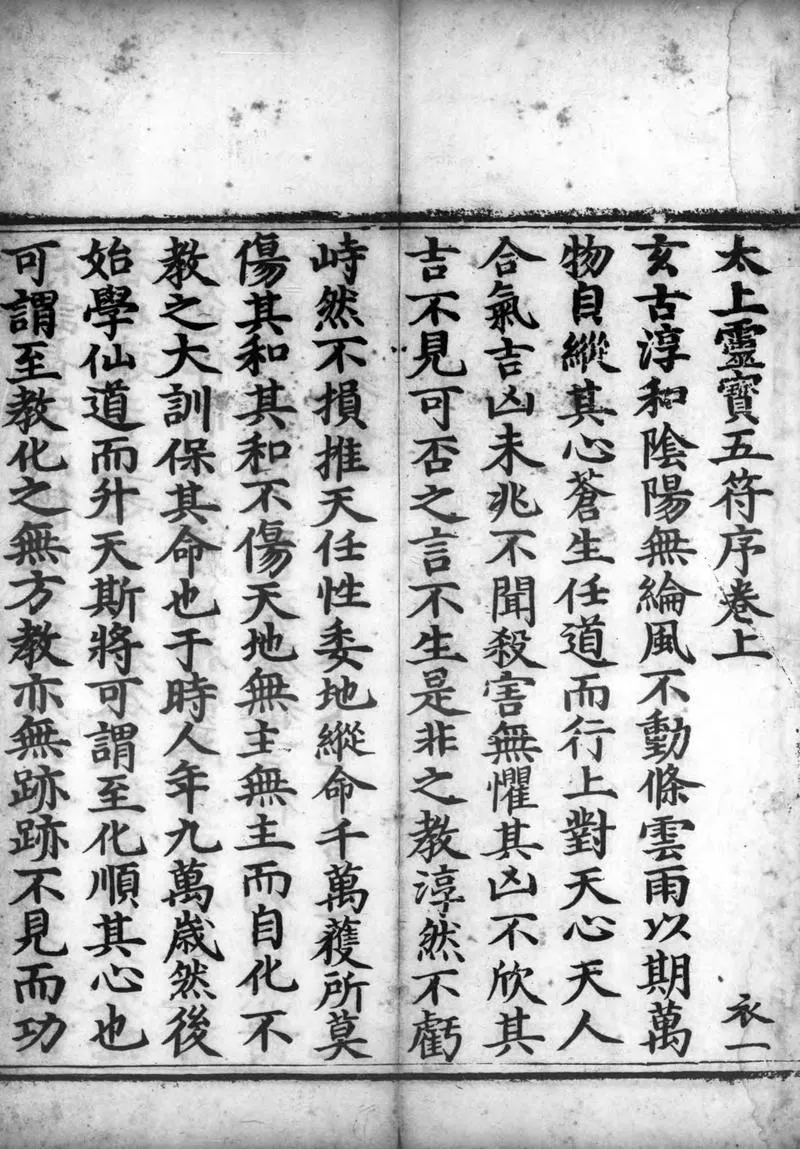 太上靈寶五符序卷上 衣一
玄古淳和陰陽無綸風不動條雲雨以期萬
物自縱其心蒼生任道而行上對天心天人
合氣吉凶未兆不聞殺害無懼其凶不欣其
吉不見可否之言不生是非之教淳然不虧
峙然不損推天任性委地縱命千萬蒦所莫
傷其和其和不傷天地無主無主而自化不
教之大訓保其命也于時人年九萬歲然後
始學仙道而升天斯將可謂至化順其心也
可謂至教化之無方教亦無跡跡不見而功